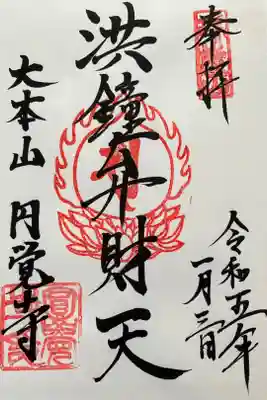 奉拝
令和五年
一月三日
洪鐘弁財天
大本山 円覚寺